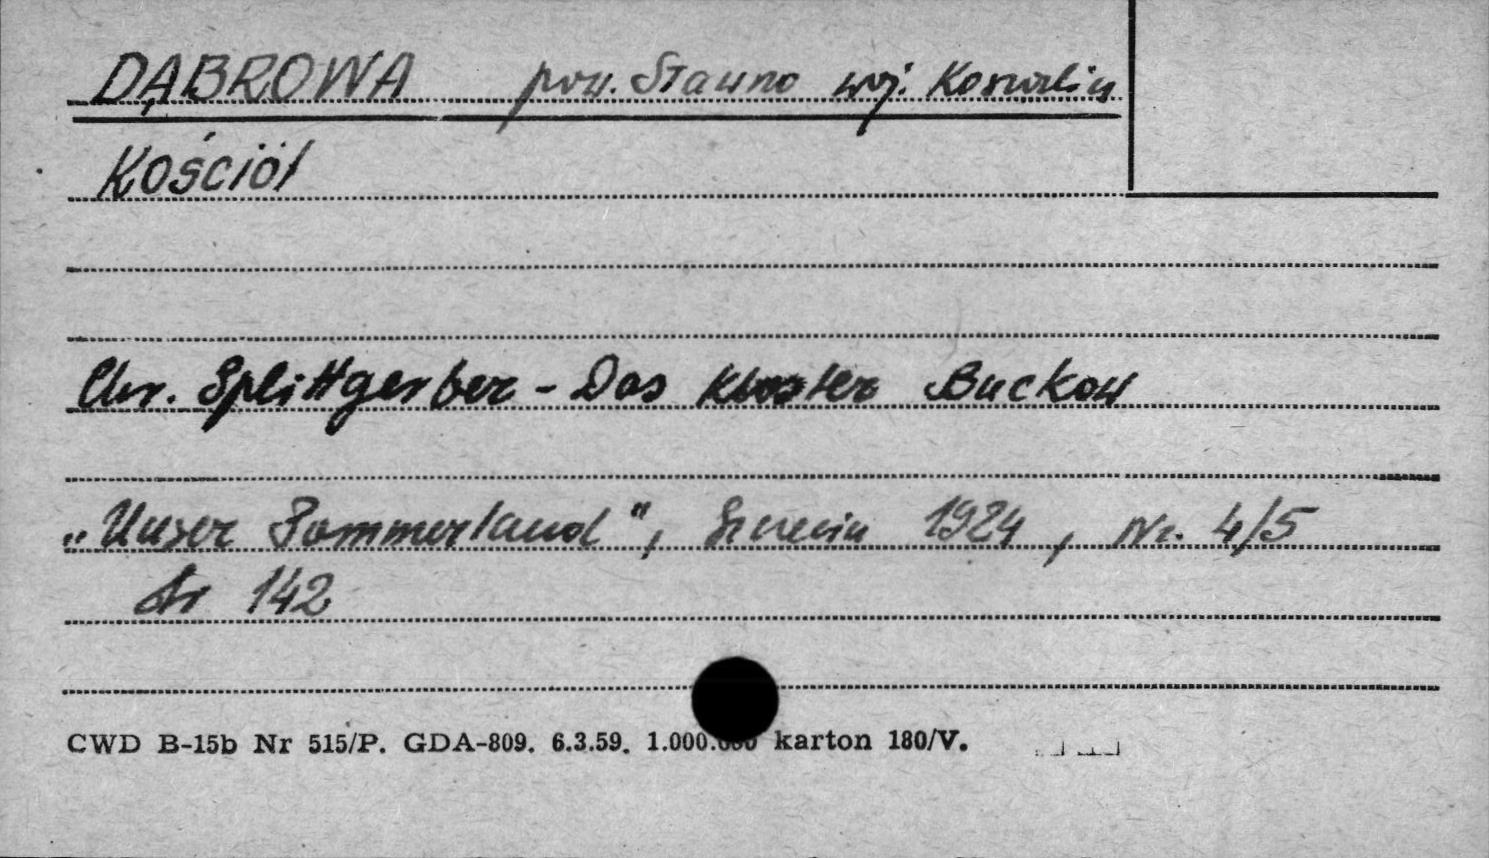 DĄBROWA pow. Sławno woj. Koszalin
Kościół
Chr. Splittgerber - Das Kloster Buckow
„Unser Pommerland", Szczecin 1924, Nr. 4/5
str 142
CWD B-15b Nr 515/P. GDA-809. 6.3.59. 1.000.000 karton 180/V.